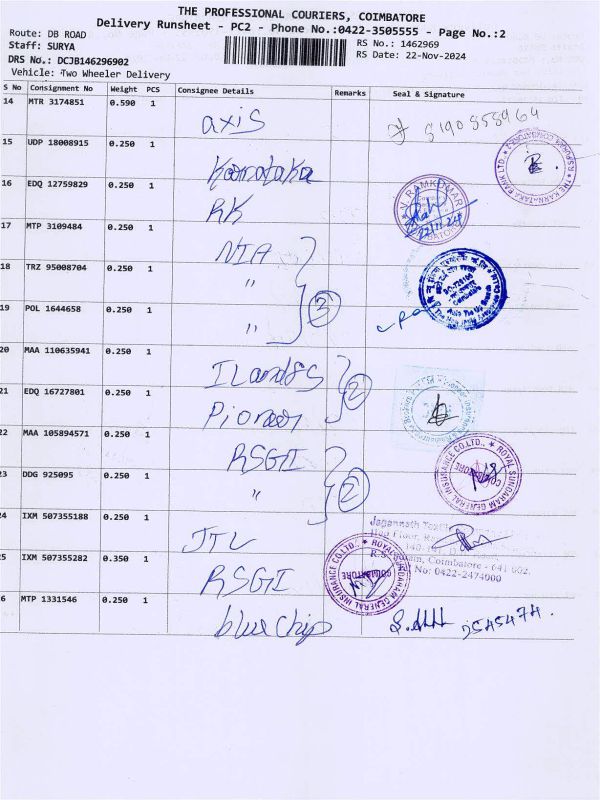 THE PROFESSIONAL COURIERS, COIMBATORE
Delivery Runsheet - PC2 - Phone No.:0422-3505555 - Page No.:2
Route: DB ROAD
Staff: SURYA
RS No.: 1462969
DRS No.: DCJB146296902
RS Date: 22-Nov-2024
Vehicle: Two Wheeler Delivery
S No Consignment No Weight PCS Consignee Details Remarks Seal & Signature
14 MTR 3174851 0.590 1 axis
15 UDP 18008915 0.250 1 Karnataka
16 EDQ 12759829 0.250 1 RK
17 MTP 3109484 0.250 1 NIA
18 TRZ 95008704 0.250 1 "
3
19 POL 1644658 0.250 1 "
20 MAA 110635941 0.250 1
21 EDQ 16727801 0.250 1 Pioneer
2
22 MAA 105894571 0.250 1 RSGI
23 DDG 925095 0.250 1 "
2
24 IXM 507355188 0.250 1 JTL
Jagannath
Coimbatore - 641 002.
No: 0422-2474000
25 IXM 507355282 0.350 1 RSGI
ROYAL SUNDARAM GENERAL INSURANCE CO.LTD.,
COIMBATORE
26 MTP 1331546 0.250 1 blue chip